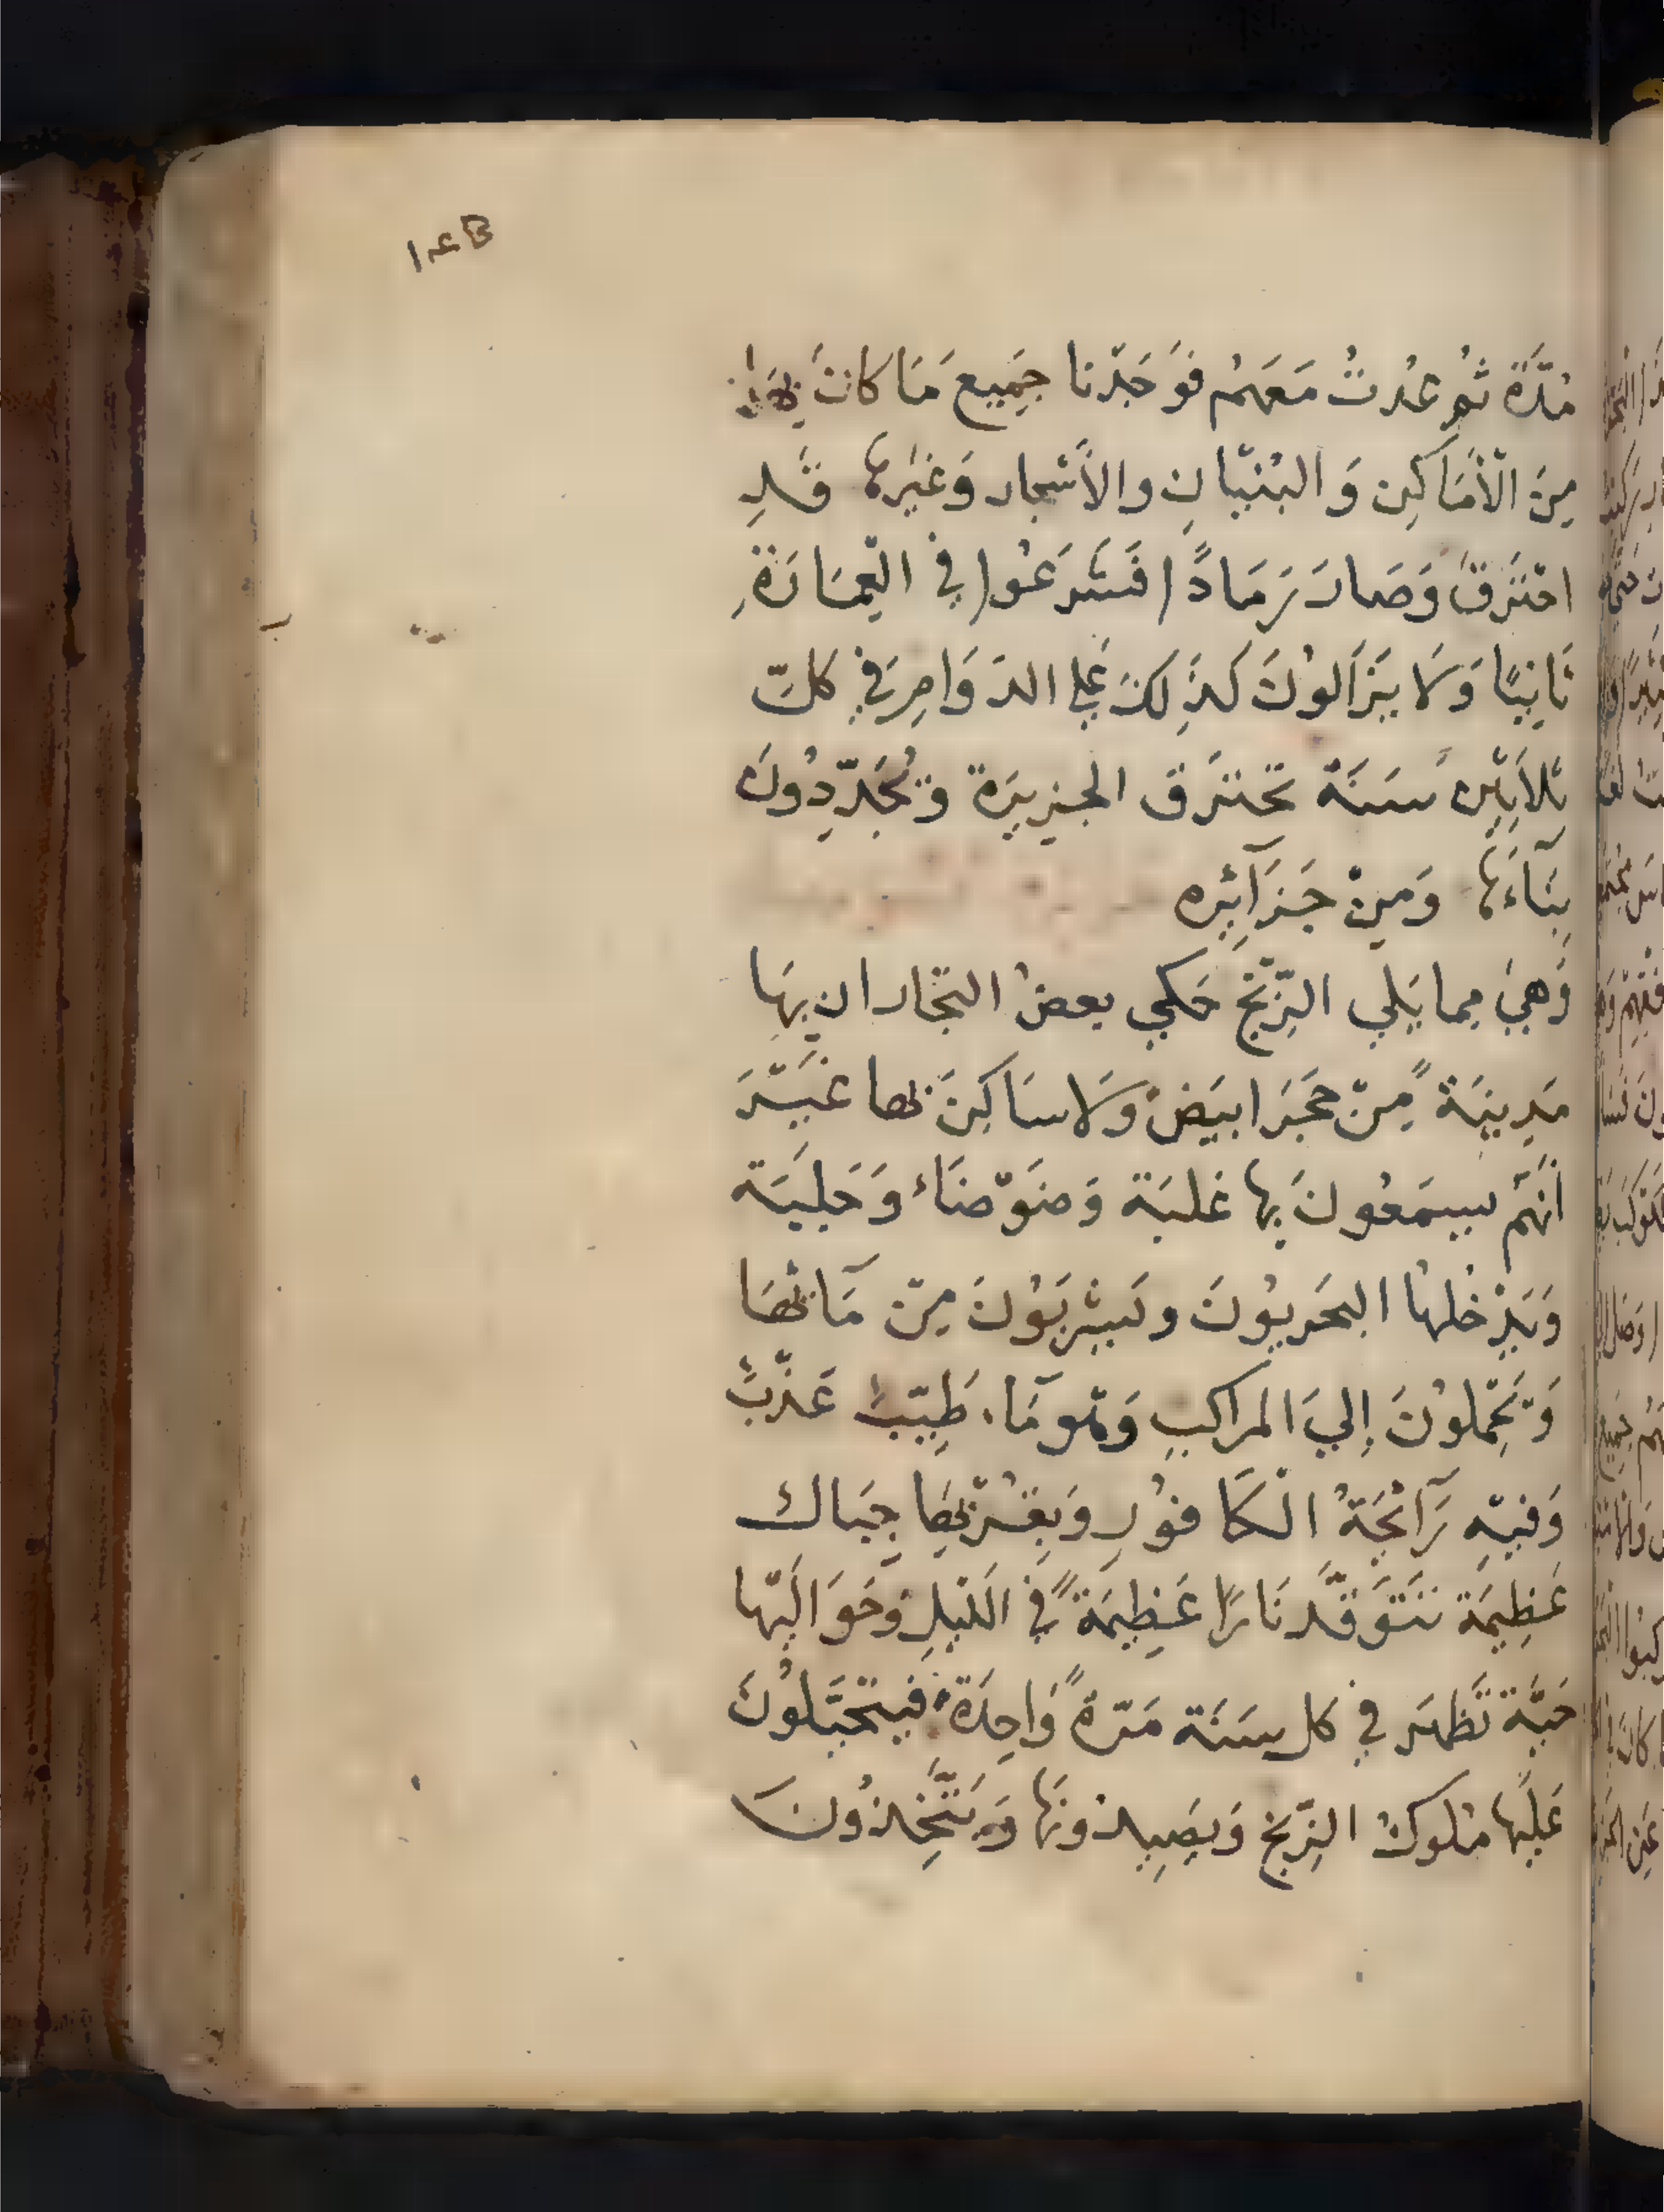 ١٤٣
مُدَّة ثُم عُدتُ مَعَهُم فَوَجَدْنا جَمِيعَ مَا كانَ بِهَا
مِنَ الْأَمَاكِن وَالبُنْيَانِ والأَشجار وَغَيْرهَا قَدِ
احْتَرَقَ وَصَارَ رَمَادًا فَشَرَعُوا فِي الْعِمَارَةِ
ثَانِيًا وَلَا يَزَالُونَ كَذَلِكَ عَلي الدَوَامِ فِي كلّ
ثلاثِين سَنَة تحترَق الجزيرَة وَيُجَدِّدُونَ
بِنَآءَهَا وَمِنْ جَزَآئِره
وَهِيَ مما يَلي الزِّنْج حَكي بعضُ التجّار ان بِهَا
مَدِينَة مِنْ حَجَر ابيَض وَلَا سَاكِنَ بها غَيْرَ
أنَّهُم يَسمَعُونَ بِها غَلبَة وَضَوْضَاء وَجَلبَة
وَيَدْخُلهَا البحَريُونَ ويَشْرَبُونَ مِنْ مَآئهَا
وَيَحْمِلُونَ إِليَ المراكبِ وَهُو مَآء طَيِّبٌ عَذْبٌ
وَفيْهِ رَآئِحَةُ الْكَافُورِ وَبِقُرْبِهَا جِبَال
عَظِيمَة تَتَوَقَّد نَارًا عَظِيمَةً فِي اللَيْلِ وَحَوَالَيْهَا
حَيَّة تَظهَر فِي كل سَنَة مَرّةً وَاحِدَة فيَتحَيَّلُونَ
عَلَيهَا مُلوكُ الزِّنج وَيَصِيدُونَهَا وَيَتَّخِذُونَ